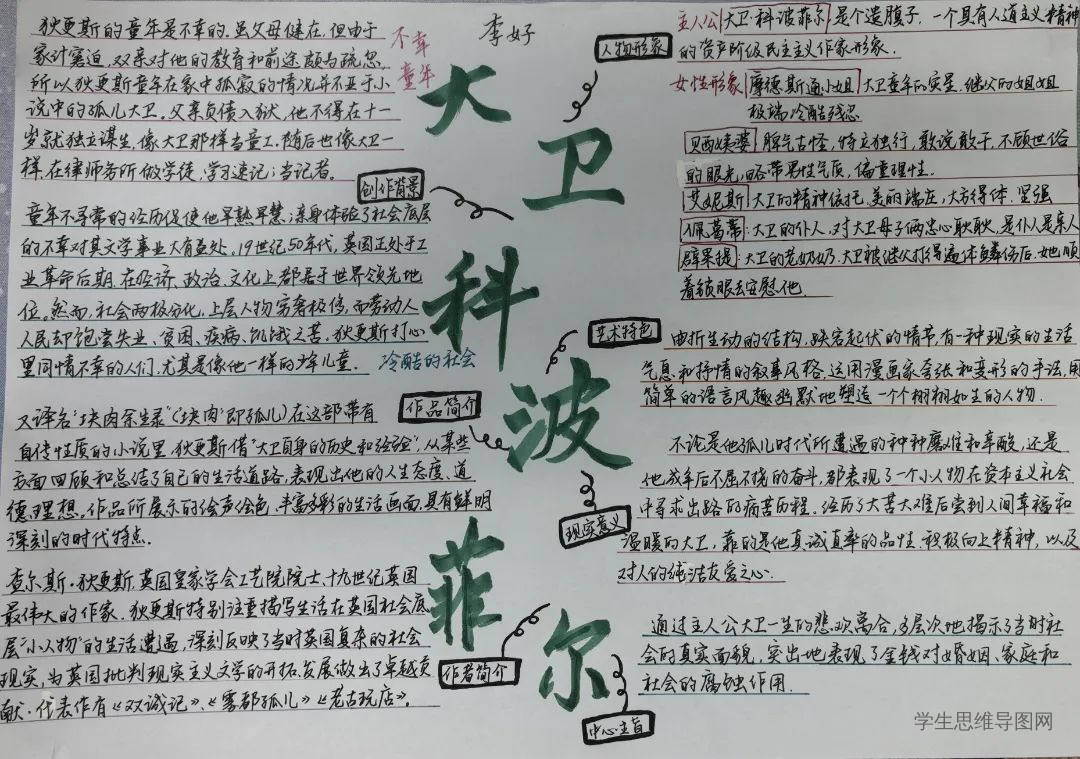 狄更斯的童年是不幸的.虽父母健在.但由于
家计窘迫,双亲对他的教育和前途颇马疏忽.
所以狄更斯童年在家中孤寂的情况并不亚于小
说中的孤儿大卫.父亲负债入狱,他不得在十一
岁就独立谋生,像大卫那样当童工.随后也像大卫一
样,在律师务所做学徒,学习速记;当记者。
不幸
童年
创作背景
童年不寻常的经历促使他早熟早慧;亲身体验了社会底层
的不幸对其文学事业大有益处.19世纪50年代,英国正处于工
业革命后期.在经济、政治、文化上都居于世界领先地
位。然而,社会两极分化,上层人物穷奢极侈,而劳动人
人民却饱尝失业、贫困、疾病、饥饿之苦。狄更斯打心
里同情不幸的人们,尤其是像他一样的少年儿童.
冷酷的社会
作品简介
又译名"块肉余生录"("块肉"即孤儿)在这部带有
自传性质的小说里,狄更斯借"大卫自身的历史和经验",从某些
方面回顾和总结了自己的生活道路,表现出他的人生态度、道
德理想。作品所展示的绘声绘色,丰富多彩的生活画面,具有鲜明
深刻的时代特点.
查尔斯·狄更斯,英国皇家学会工艺院院士、十九世纪英国
最伟大的作家.狄更斯特别注重描写生活在英国社会底
层"小人物"的生活遭遇,深刻反映了当时英国复杂的社会
现实,为英国批判现实主义文学的开拓发展做出了卓越贡
献.代表作有《双城记》、《雾都孤儿》《老古玩店》。
作者简介
李好
大
卫
科
波
菲
尔
人物形象
主人公 大卫·科波菲尔 是个遗腹子.一个具有人道主义精神
的资产阶级民主主义作家形象.
女性形象 摩德斯通小姐 大卫童年的灾星.继父的姐姐
极端冷酷残忍
贝西姨婆 脾气古怪,特立独行,敢说敢干,不顾世俗
的眼光,略带男性气质,偏重理性.
艾妮斯 大卫的精神依托.美丽端庄,大方得体.坚强
佩葛蒂:大卫的仆人,对大母子俩忠心耿耿,是仆人是亲人
辟果提:大卫的老奶奶.大卫被继父打得遍体鳞伤后.她顺
着锁眼去安慰他.
艺术特色
曲折生动的结构,跌宕起伏的情节,有一种现实的生活
气息和抒情的叙事风格.运用漫画家夸张和变形的手法,用
简单的语言风趣幽默地塑造一个个栩栩如生的人物.
现实意义
不论是他孤儿时代所遭遇的种种磨难和辛酸,还是
他成年后不屈不挠的奋斗,都表现了一个小人物在资本主义社会
中寻求出路的痛苦历程.经历了大苦大难后尝到人间幸福和
温暖的大卫,靠的是他真诚直率的品性,积极向上精神,以及
对人的纯洁友爱之心.
中心主旨
通过主人公大卫一生的悲欢离合,多层次地揭示了当时社
会的真实面貌,突出地表现了金钱对婚姻、家庭和
社会的腐蚀作用.
学生思维导图网